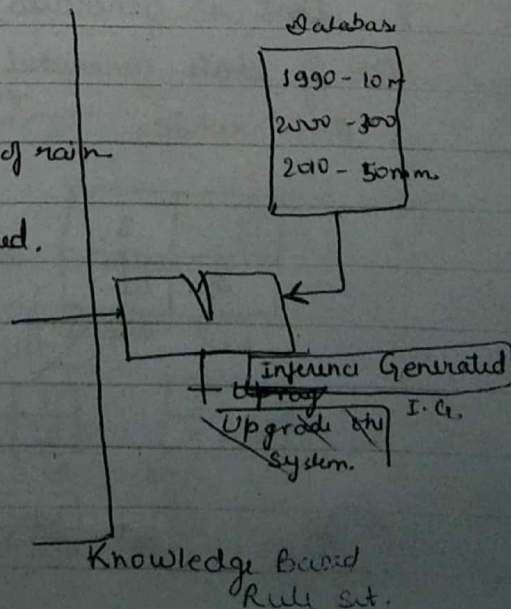 Database
1990 - 10m
2000 - 300
2010 - 50mm
of rain
ed.
Inference Generated
I. G.
Upgrade the
System.
Knowledge Based
Rule set.